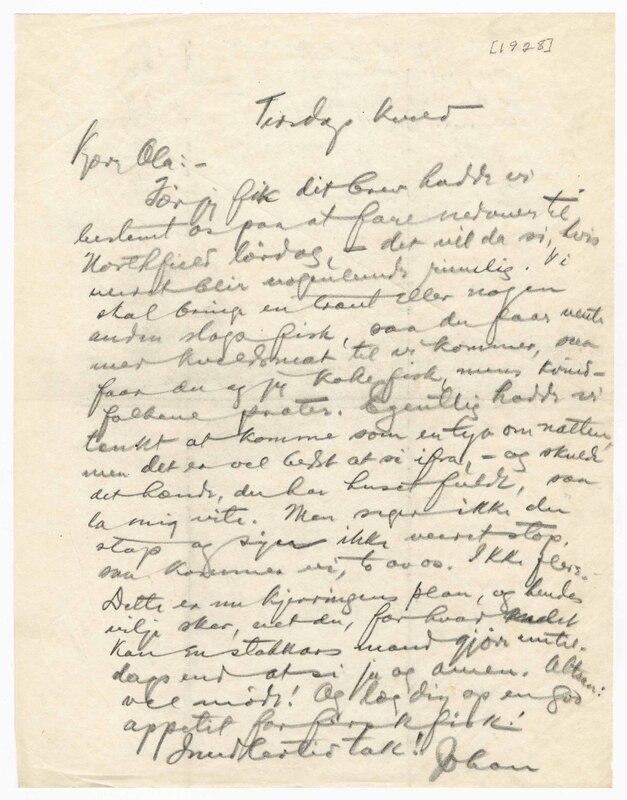 [1928]
Tirsdags kveld
Kjære Ola:-
Før jeg fik dit brev hadde vi
bestemt os paa at fare nedover til
Northfield lørdag, - det vil da si, hvis
veiret blir nogenlunde rimelig. Vi
skal bringe en trout eller nogen
anden slags fisk, saa du faar vente
med kveldsmat til vi kommer, saa
faar du og jeg koke fisk, mens kvind-
folkene prater. Egentlig hadde vi
tænkt at komme som en tyv om natten,
men det er vel bedst at si ifra, - og skulde
det hænde, du har huset fuldt, saa
la mig vite. Men siger ikke du
stop og siger ikke veiret stop,
saa kommer vi, to av os. Ikke flere.
Dette er nu kjerringens plan, og hendes
vilje sker, vet du, for hvad andet
kan en stakkars mand gjøre nutil-
dags end at si ja og amen. Altsaa:
vel møtt! Og læg dig op en god
appetit for fersk fisk!
Imidlertid tak!
Johan